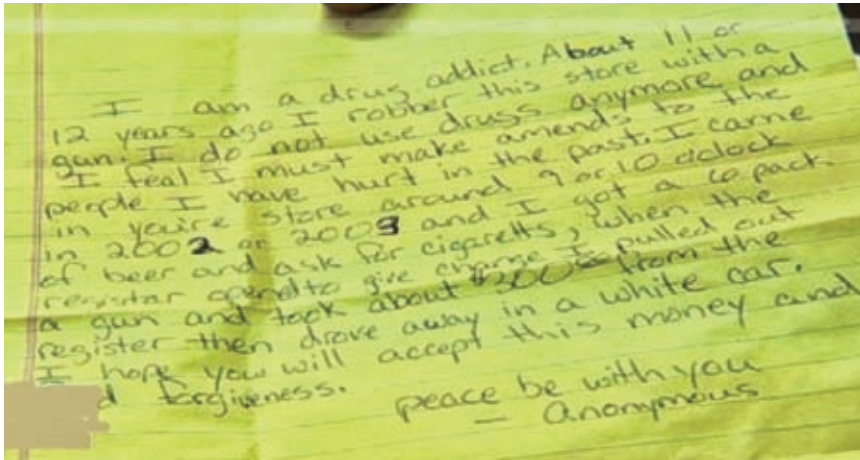 I am a drug addict. About 11 or
12 years ago I robber this store with a
gun. I do not use drugs anymore and
I feal I must make amends to the
people I have hurt in the past. I came
in you're store around 9 or 10 oclock
in 2002 or 2003 and I got a 6 pack
of beer and ask for cigaretts, when the
registar opend to give change I pulled out
a gun and took about $300 from the
register then drove away in a white car.
I hope you will accept this money and
forgiveness.
peace be with you
— Anonymous